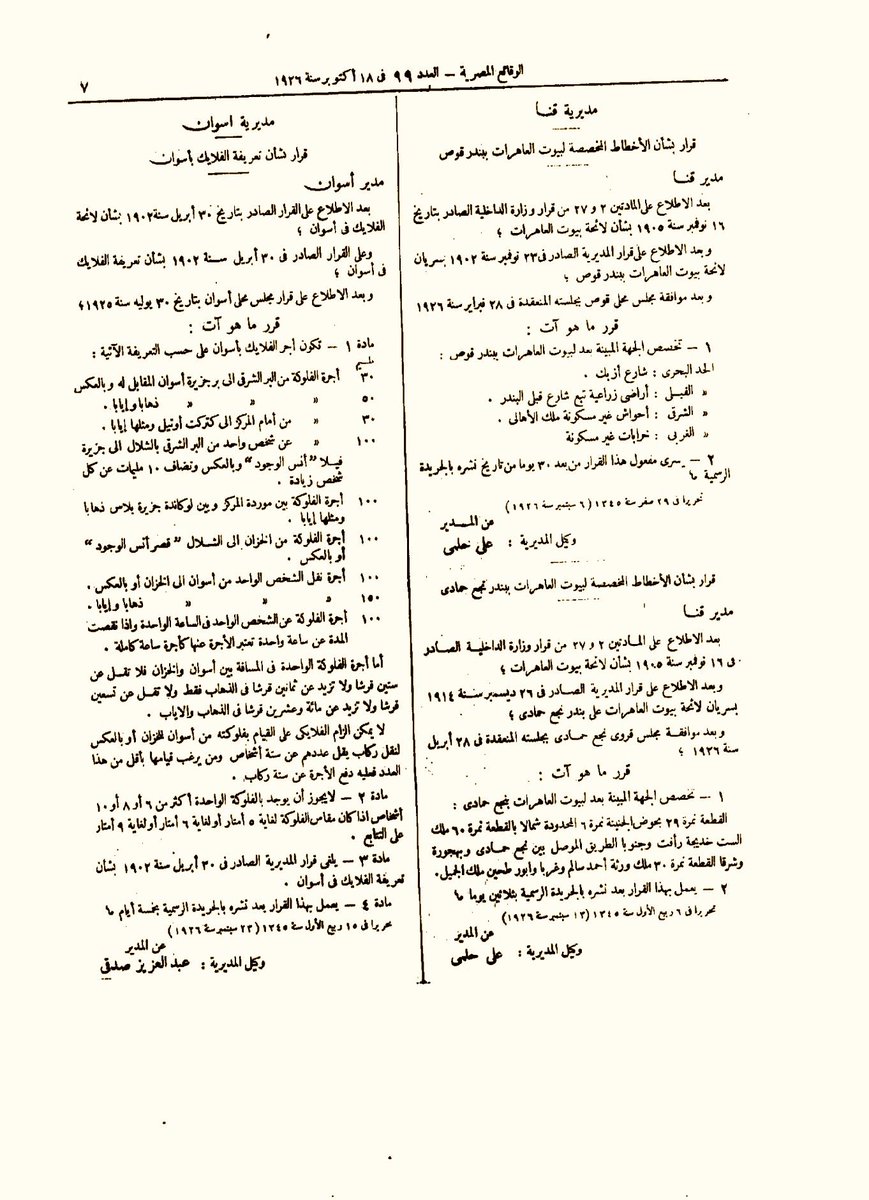 الوقائع المصرية – العدد ٩٩ فى ١٨ أكتوبر سنة ١٩٢٦
٧
مديرية قنا
قرار بشأن الأخطاط المخصصة لبيوت العاهرات ببندر قوص
مدير قنا
بعد الاطلاع على المادتين ٢ و ٢٧ من قرار وزارة الداخلية الصادر بتاريخ
١٦ نوفمبر سنة ١٩٠٥ بشأن لائحة بيوت العاهرات ؛
وبعد الاطلاع على قرار المديرية الصادر فى ٢٣ نوفمبر سنة ١٩٠٢ بسريان
لائحة بيوت العاهرات ببندر قوص ؛
وبعد موافقة مجلس محلى قوص بجلسته المنعقدة فى ٢٨ فبراير سنة ١٩٢٦
قرر ما هو آت :
١ – تخصص الجهة المبينة بعد لبيوت العاهرات ببندر قوص :
الحد البحرى : شارع أزبك .
» القبلى : أراضى زراعية تبع شارع قبلى البندر .
» الشرقى : أحواش غير مسكونة ملك الأهالى .
» الغربى : خرابات غير مسكونة
٢ – يسرى مفعول هذا القرار من بعد ٣٠ يوما من تاريخ نشره بالجريدة
الرسمية ما
تحريرا فى ٢٩ صفر سنة ١٣٤٥ ( ٦ سبتمبر سنة ١٩٢٦ )
عن المدير
وكيل المديرية : على حلمى
قرار بشأن الأخطاط المخصصة لبيوت العاهرات ببندر نجع حمادى
مدير قنا
بعد الاطلاع على المادتين ٢ و ٢٧ من قرار وزارة الداخلية الصادر
فى ١٦ نوفمبر سنة ١٩٠٥ بشأن لائحة بيوت العاهرات ؛
وبعد الاطلاع على قرار المديرية الصادر فى ٢٦ ديسمبر سنة ١٩١٤
بسريان لائحة بيوت العاهرات على بندر نجع حمادى ؛
وبعد موافقة مجلس قروى نجع حمادى بجلسته المنعقدة فى ٢٨ أبريل
سنة ١٩٢٦ ؛
قرر ما هو آت :
١ – تخصص الجهة المبينة بعد لبيوت العاهرات بنجع حمادى :
القطعة نمرة ٢٩ بحوض الجنينة نمرة ٦ المحدودة شمالا بالقطعة نمرة ٦٠ ملك
الست خديجة رأفت وجنوبا الطريق الموصل بين نجع حمادى وبهجورة
وشرقا القطعة نمرة ٣٠ ملك ورثة أحمد سالم وغربا وابور طحين ملك الجميل.
٢ – يعمل بهذا القرار بعد نشره بالجريدة الرسمية بثلاثين يوما ما
تحريرا فى ٦ ربيع الأول سنة ١٣٤٥ ( ١٣ سبتمبر سنة ١٩٢٦ )
عن المدير
وكيل المديرية : على حلمى
مديرية اسوان
قرار بشأن تعريفة الفلايك بأسوان
مدير أسوان
بعد الاطلاع على القرار الصادر بتاريخ ٣٠ أبريل سنة ١٩٠٢ بشأن لائحة
الفلايك فى أسوان ؛
وعلى القرار الصادر فى ٣٠ أبريل سنة ١٩٠٢ بشأن تعريفة الفلايك
فى أسوان ؛
وبعد الاطلاع على قرار مجلس محلى أسوان بتاريخ ٣٠ يوليه سنة ١٩٢٥؛
قرر ما هو آت :
مادة ١ – تكون أجر الفلايك بأسوان على حسب التعريفة الآتية :
مليم
٣٠ أجرة الفلوكة من البر الشرقى الى بر جزيرة أسوان المقابل له وبالعكس
٥٠ » » » » ذهابا وإيابا .
٣٠ » من أمام المركز الى كتركت أوتيل ومثلها إيابا .
١٠٠ » عن شخص واحد من البر الشرقى بالشلال الى جزيرة
فيلا ”أنس الوجود“ وبالعكس وتضاف ١٠ مليمات عن كل
شخص زيادة .
١٠٠ أجرة الفلوكة بين موردة المركز وبين لوكاندة جزيرة بلاس ذهابا
ومثلها إيابا .
١٠٠ أجرة الفلوكة من الخزان الى الشلال ”قصر أنس الوجود“
أو بالعكس .
١٠٠ أجرة نقل الشخص الواحد من أسوان الى الخزان أو بالعكس .
١٥٠ » » » ذهابا وإيابا .
١٠٠ أجرة الفلوكة عن الشخص الواحد فى الساعة الواحدة واذا نقصت
المدة عن ساعة واحدة تعتبر الأجرة عنها كأجرة ساعة كاملة .
أما أجرة الفلوكة الواحدة فى المسافة بين أسوان والخزان فلا تقل عن
ستين قرشا ولا تزيد عن ثمانين قرشا فى الذهاب فقط ولا تقل عن تسعين
قرشا ولا تزيد عن مائة وعشرين قرشا فى الذهاب والاياب .
لا يمكن الزام الفلايكى على القيام بفلوكته من أسوان للخزان أو بالعكس
لنقل ركاب يقل عددهم عن ستة أشخاص ومن يرغب قيامها بأقل من هذا
العدد فعليه دفع الأجرة عن ستة ركاب .
مادة ٢ – لايجوز أن يوجد بالفلوكة الواحدة أكثر من ٦ أو ٨ أو ١٠
أشخاص اذا كان مقاس الفلوكة لغاية ٥ أمتار أولغاية ٦ أمتار أولغاية ٩ أمتار
على التتابع .
مادة ٣ – يلغى قرار المديرية الصادر فى ٣٠ أبريل سنة ١٩٠٢ بشأن
تعريفة الفلايك فى أسوان .
مادة ٤ – يعمل بهذا القرار بعد نشره بالجريدة الرسمية بخمسة أيام ما
تحريرا فى ١٥ ربيع الأول سنة ١٣٤٥ ( ٢٣ سبتمبر سنة ١٩٢٦ )
عن المدير
وكيل المديرية : عبد العزيز صدقى